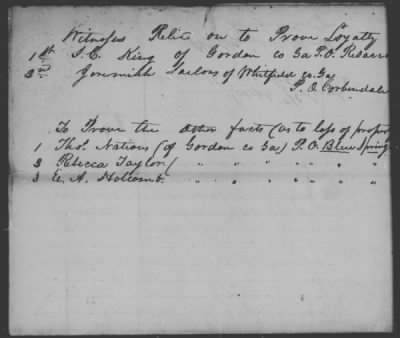 Witnesses Relie on to Prove Loyalty
1st J. C. King of Gordon co Ga P.O. Resacca
2nd Jeremiah of Whitfield co Ga
P. O.
To Prove the other facts (as to loss of proper
1 Thos. Nations (of Gordon co Ga) P.O. Blue Spring
2 Rebecca Taylor ( " " " " "
3 E. A. Holcomb. " " " " "